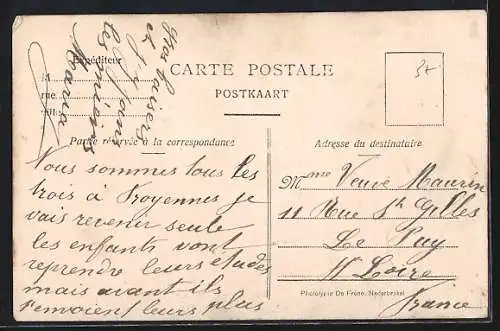 Expéditeur
M
rue
CARTE POSTALE
POSTKAART
37
Partie réservée à la correspondance
Adresse du destinataire
Nous sommes tous les
trois à Froyennes je
vais revenir seule
les enfants vont
reprendre leurs etudes
mais avant ils
t'envoient leurs plus
gros baisers
et
les miens
Maria
Mme Veuve Maurin
11 Rue St Gilles
Le Puy
Hte Loire
France
Phototypie De Frene, Nederbrakel